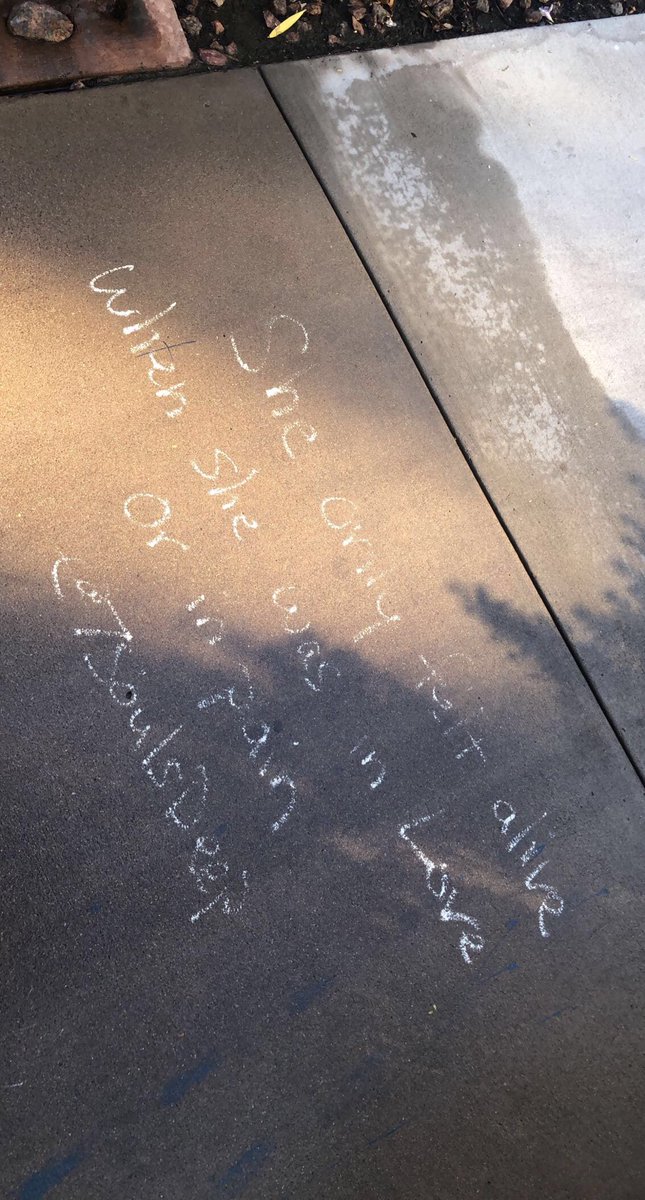 She only felt alive
When she was in Love
Or in pain
@SoulsDeep